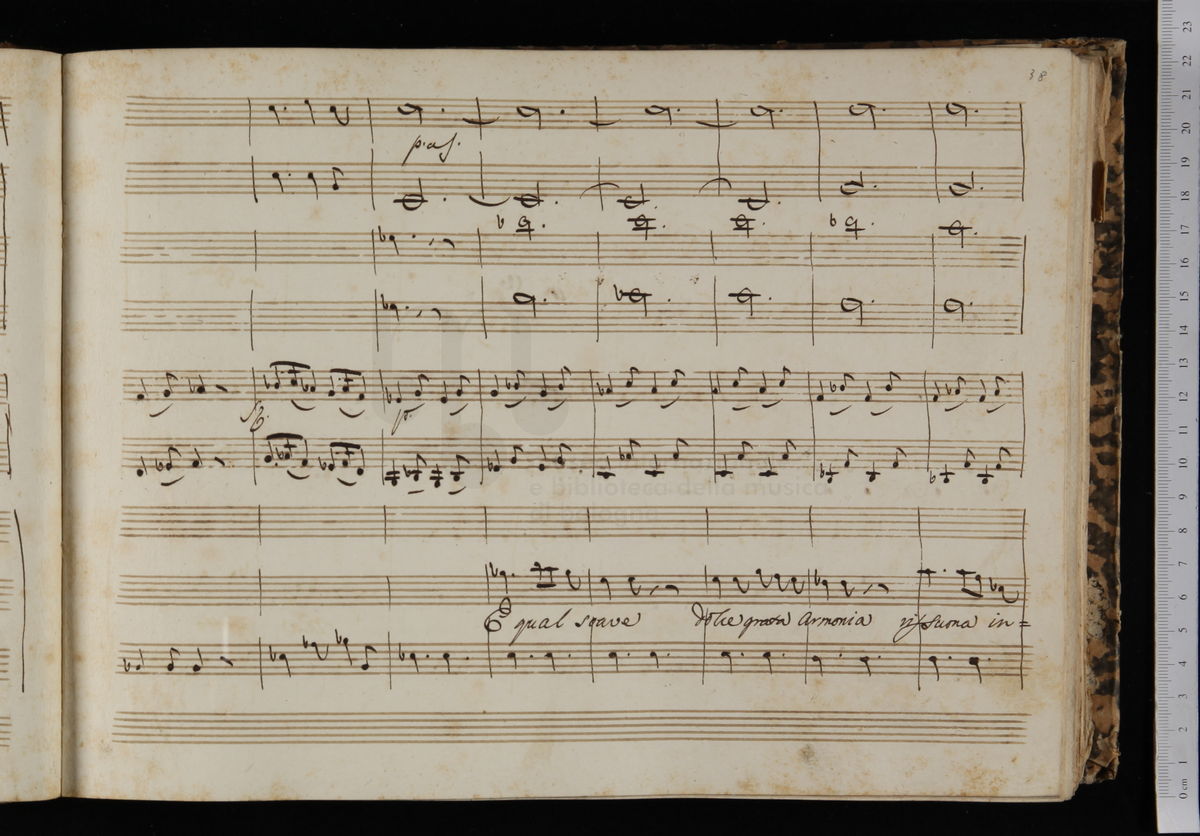 38
p.
E qual soave dolce grata armonia risuona in=
e biblioteca della musica
di bologna
0 cm 1 2 3 4 5 6 7 8 9 10 11 12 13 14 15 16 17 18 19 20 21 22 23